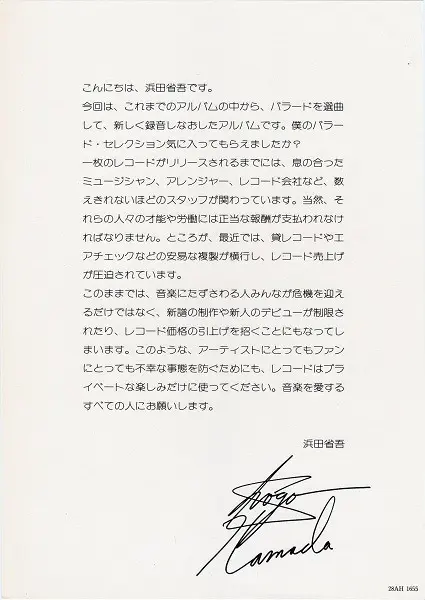 こんにちは、浜田省吾です。
今回は、これまでのアルバムの中から、バラードを選曲
して、新しく録音しなおしたアルバムです。僕のバラー
ド・セレクション気に入ってもらえましたか？
一枚のレコードがリリースされるまでには、息の合った
ミュージシャン、アレンジャー、レコード会社など、数
えきれないほどのスタッフが関わっています。当然、そ
れらの人々の才能や労働には正当な報酬が支払われなけ
ればなりません。ところが、最近では、貸レコードやエ
アチェックなどの安易な複製が横行し、レコード売上げ
が圧迫されています。
このままでは、音楽にたずさわる人みんなが危機を迎え
るだけではなく、新譜の制作や新人のデビューが制限さ
れたり、レコード価格の引上げを招くことにもなってし
まいます。このような、アーティストにとってもファン
にとっても不幸な事態を防ぐためにも、レコードはプラ
イベートな楽しみだけに使ってください。音楽を愛する
すべての人にお願いします。
浜田省吾
Shogo
Hamada
28AH 1655